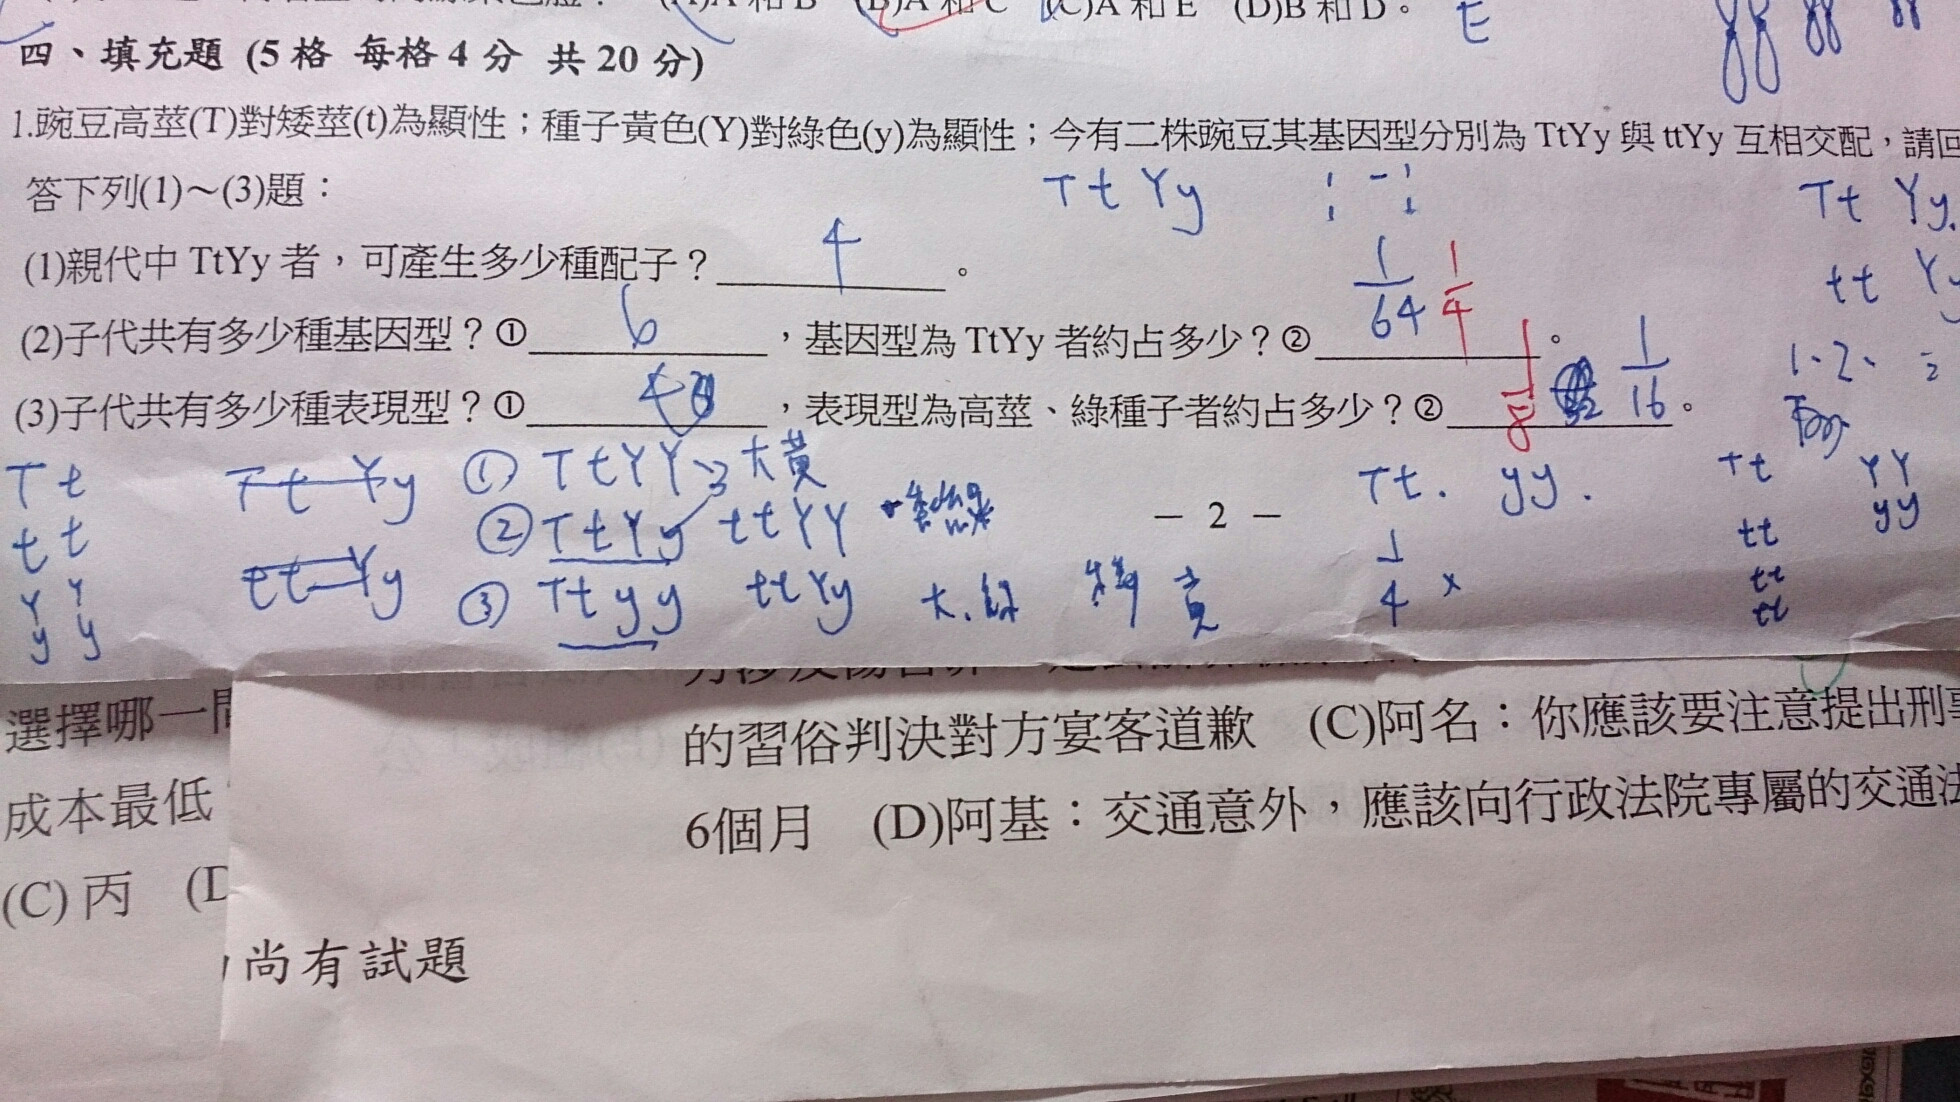 (B)A和C (C)A和E (D)B和D。
E
四、填充題 (5格 每格4分 共20分)
1.豌豆高莖(T)對矮莖(t)為顯性；種子黃色(Y)對綠色(y)為顯性；今有二株豌豆其基因型分別為 TtYy 與 ttYy 互相交配，請回
答下列(1)～(3)題：
Tt Yy
Tt Yy
(1)親代中 TtYy 者，可產生多少種配子？ 4 。
tt Yy
1/64 1/4
(2)子代共有多少種基因型？① 6 ，基因型為 TtYy 者約占多少？② 。
(3)子代共有多少種表現型？① 4 ，表現型為高莖、綠種子者約占多少？② 1/8 1/16 。
Tt
tt
YY
yy
Tt Yy
tt Yy
① TtYY 大黃
② TtYy ttYY
③ Ttyy ttYy 大.綠
－ 2 －
Tt. yy.
1/4 x
Tt YY
yy
tt
tt
tt
選擇哪一間
成本最低
(C) 丙 (D
尚有試題
的習俗判決對方宴客道歉 (C)阿名：你應該要注意提出刑事
6個月 (D)阿基：交通意外，應該向行政法院專屬的交通法